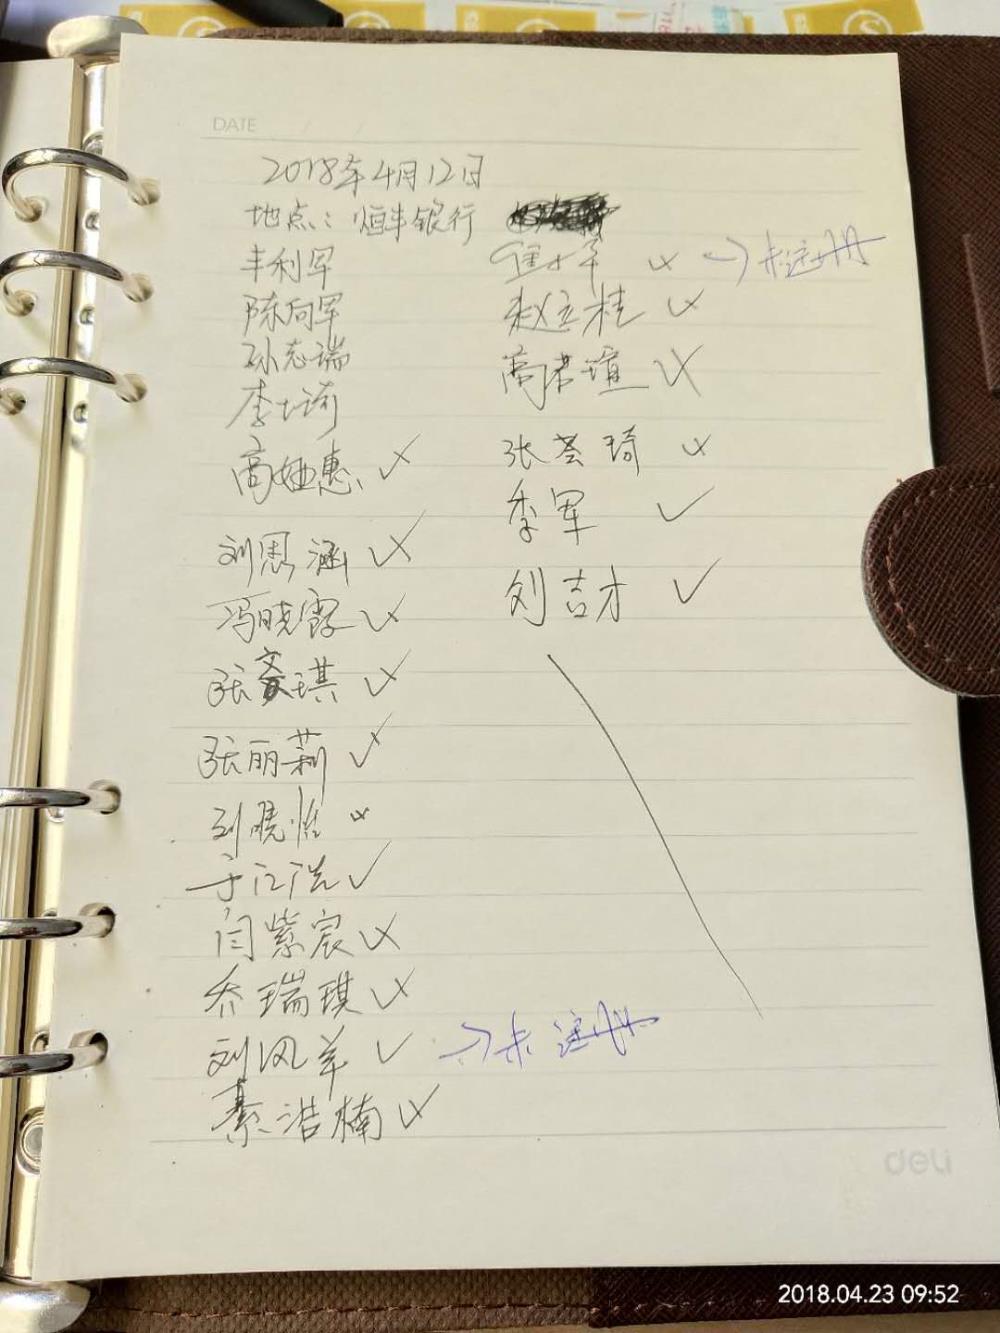 DATE / /
2018年4月12日
地点：恒丰银行
丰利军
陈向军
孙志瑞
李士琦
高娅惠
刘思涵
冯晓霞
张 琪
张丽莉
刘晓怡
于江浩
闫紫宸
乔瑞琪
刘风羊
綦浩楠
崔 → 未注册
赵立桂
高君
张荟琦
季军
刘吉才
→ 未注册
deli
2018.04.23 09:52